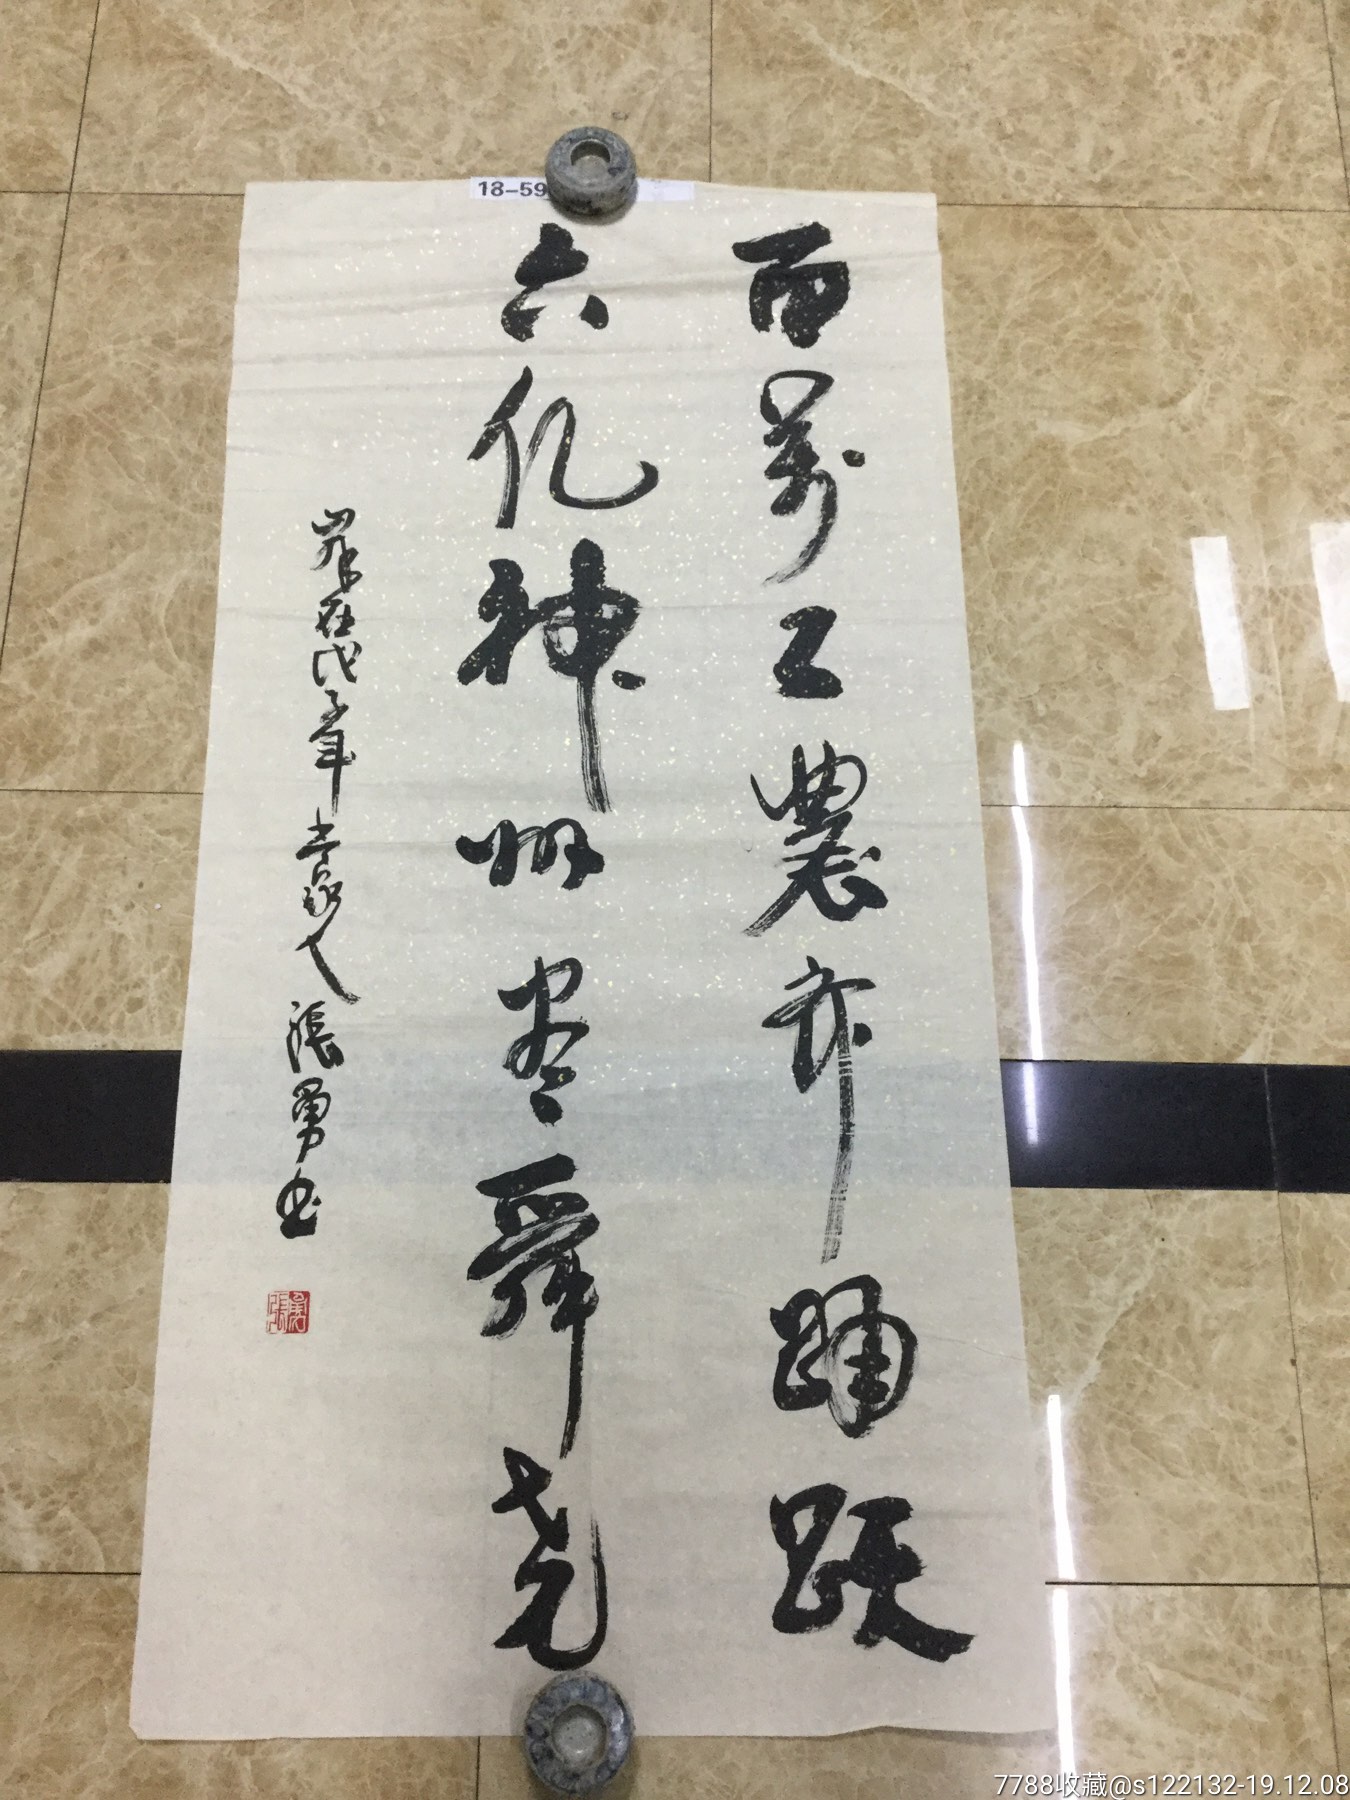 18-59
百萬工農齐踊跃
六亿神州尽舜尧
嵗在戊子年 張勇书
張勇
7788收藏@s122132-19.12.08